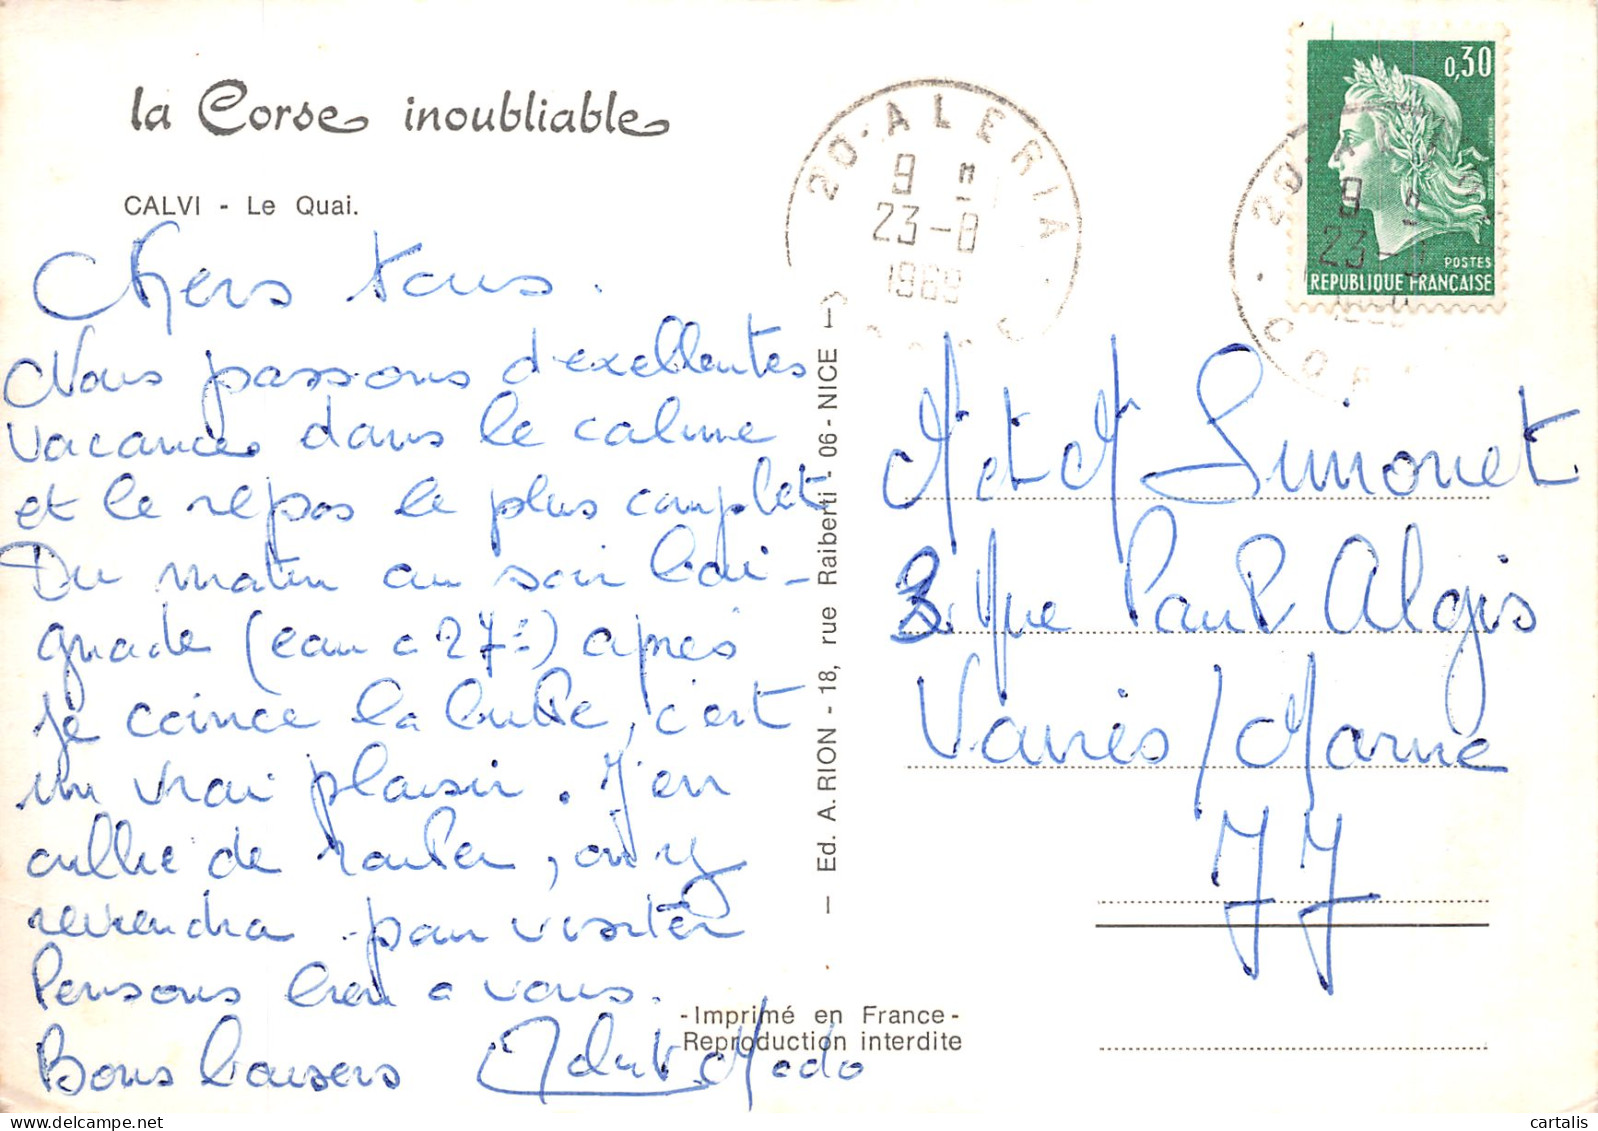 la Corse inoubliable
CALVI - Le Quai.
Chers tous.
Nous passons d'excellentes
vacances dans le calme
et le repos le plus complet
Du matin au soir bai-
gnade (eau à 27°) après
je coince la bulle, c'est
un vrai plaisir. J'en
oublie de rouler, on y
reviendra pour visiter
Pensons bien a vous.
Bons baisers
- Ed. A. RION - 18, rue Raiberti - 06 - NICE -
-Imprimé en France-
Reproduction interdite
20·ALERIA
9 H
23-8
1969
20·AL
9 H
23-8
COR
0,30
POSTES
REPUBLIQUE FRANÇAISE
M et M Simonet
3 Rue Paul Algis
Varrès/Marne
77
cartalis